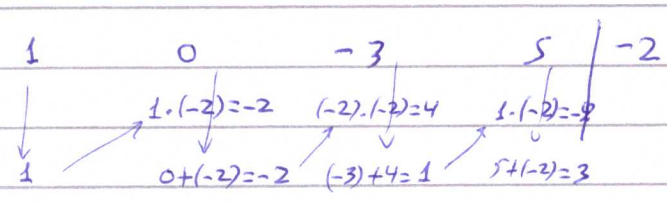 1 0 -3 5 | -2
1·(-2)=-2 (-2)·(-2)=4 1·(-2)=-2
1 0+(-2)=-2 (-3)+4=1 5+(-2)=3